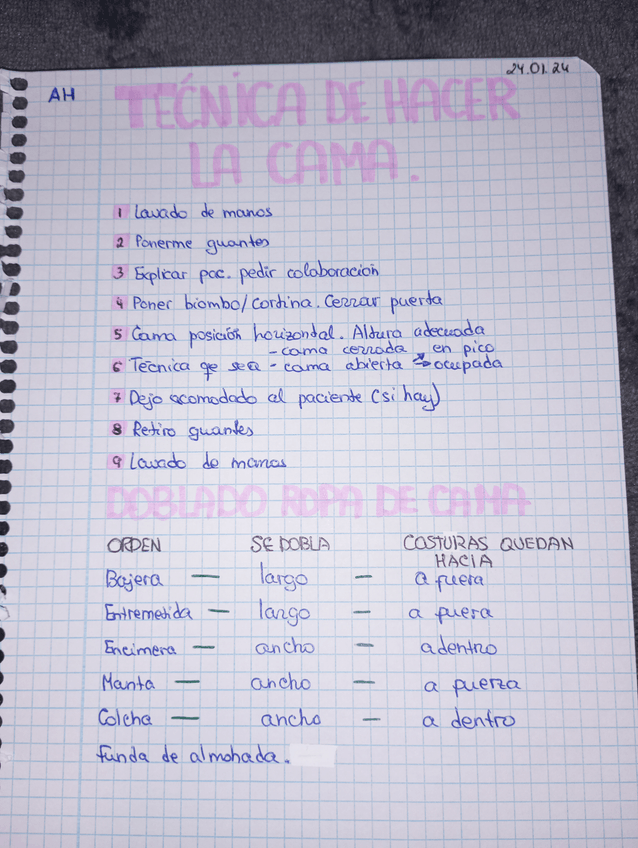 24.01.24
AH
TECNICA DE HACER
LA CAMA.
1 Lavado de manos
2 Ponerme guantes
3 Explicar pac. pedir colaboración
4 Poner biombo/cortina. Cerrar puerta
5 Cama posición horizontal. Altura adecuada
- cama cerrada → en pico
6 Técnica qe sea - cama abierta → ocupada
7 Dejo acomodado al paciente (si hay)
8 Retiro guantes
9 Lavado de manos
DOBLADO ROPA DE CAMA
ORDEN SE DOBLA COSTURAS QUEDAN
HACIA
Bajera — largo — a fuera
Entremetida — largo — a fuera
Encimera — ancho — adentro
Manta — ancho — a fuerza
Colcha — ancho — a dentro
funda de almohada.